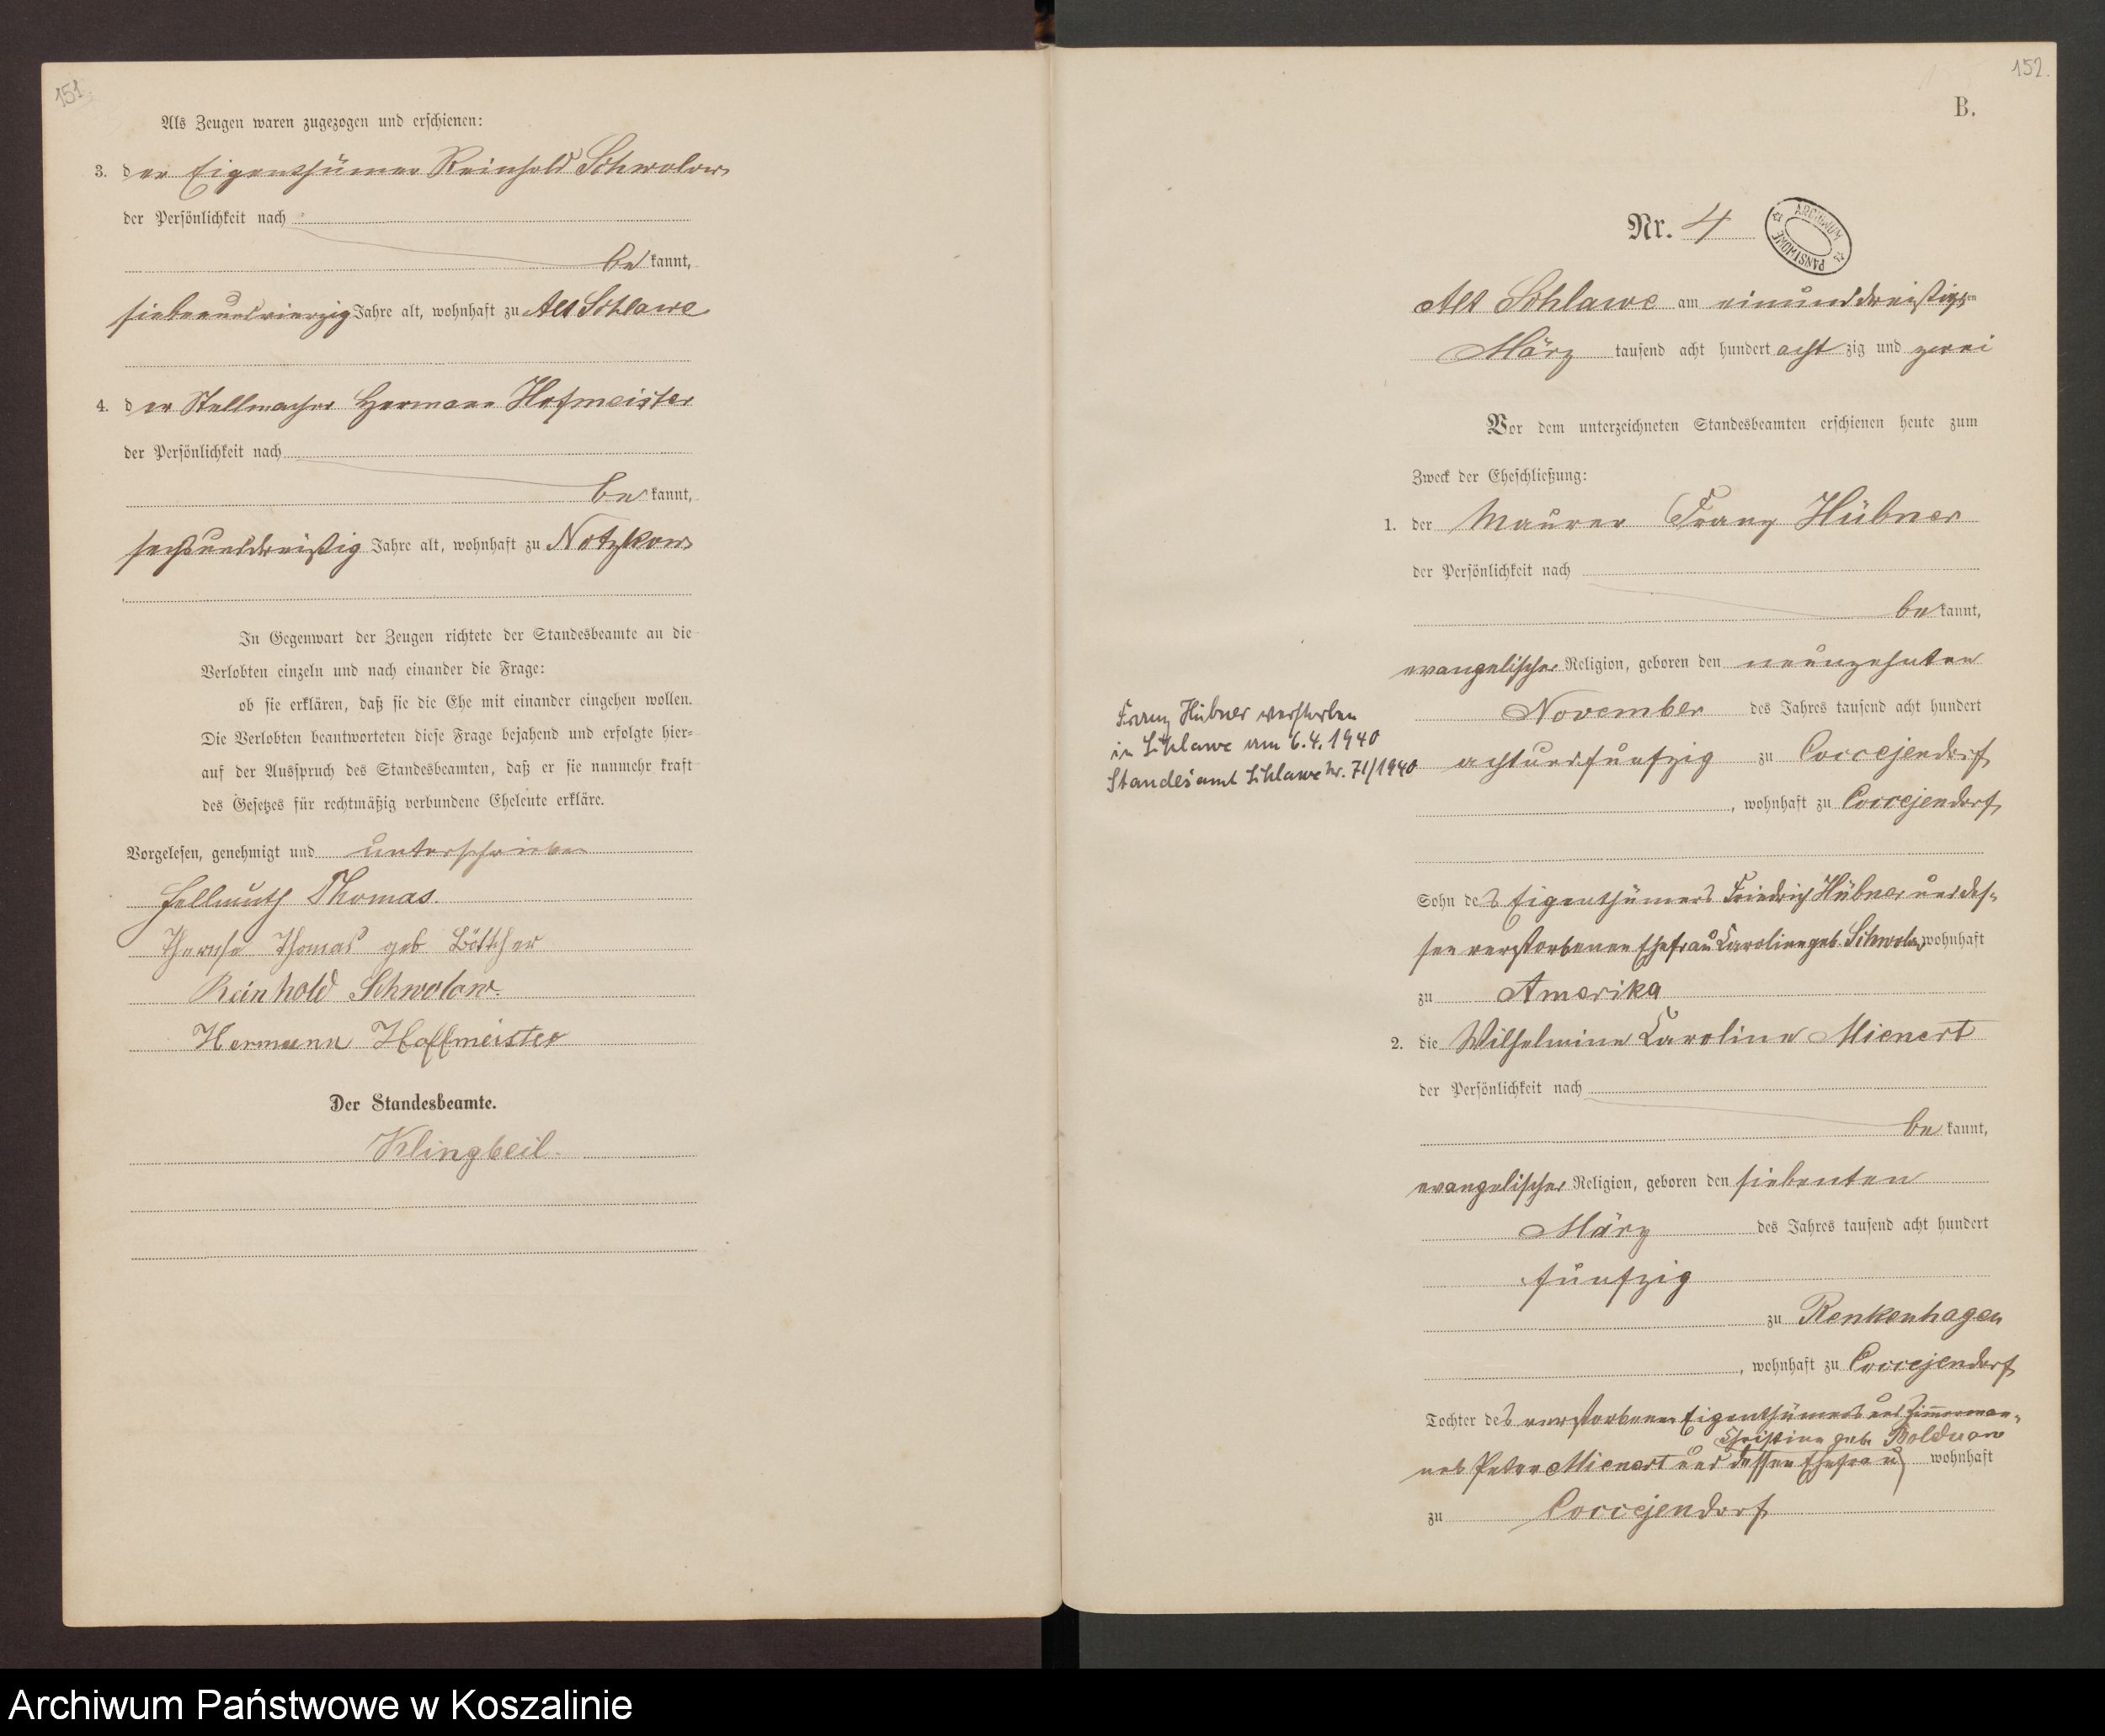 151.
Als Zeugen waren zugezogen und erschienen:
3. der Eigenthümer Reinhold Schwolow
der Persönlichkeit nach
bekannt,
siebenundvierzig Jahre alt, wohnhaft zu Alt Schlawe
4. der Stellmacher Hermann Hofmeister
der Persönlichkeit nach
bekannt,
sechsunddreißig Jahre alt, wohnhaft zu Notzkow
In Gegenwart der Zeugen richtete der Standesbeamte an die
Verlobten einzeln und nach einander die Frage:
ob sie erklären, daß sie die Ehe mit einander eingehen wollen.
Die Verlobten beantworteten diese Frage bejahend und erfolgte hier-
auf der Ausspruch des Standesbeamten, daß er sie nunmehr kraft
des Gesetzes für rechtmäßig verbundene Eheleute erkläre.
Vorgelesen, genehmigt und unterschrieben
Hellmuth Thomas.
Therese Thomas geb Böttcher
Reinhold Schwolow.
Hermann Hoffmeister
Der Standesbeamte.
Klingbeil.
152.
B.
Nr. 4
ARCHIWUM PAŃSTWOWE
Alt Schlawe am einunddreißigsten
März tausend acht hundert achtzig und zwei
Vor dem unterzeichneten Standesbeamten erschienen heute zum
Zweck der Eheschließung:
1. der Maurer Franz Hübner
der Persönlichkeit nach
bekannt,
evangelischer Religion, geboren den neunzehnten
November des Jahres tausend acht hundert
achtundfünfzig zu Coccejendorf
, wohnhaft zu Coccejendorf
Franz Hübner verstorben
in Schlawe am 6.4.1940
Standesamt Schlawe Nr. 71/1940
Sohn des Eigenthümers Friedrich Hübner und des-
sen verstorbenen Ehefrau Karoline geb. Schwolow wohnhaft
zu Amerika
2. die Wilhelmine Karoline Mienert
der Persönlichkeit nach
bekannt,
evangelischer Religion, geboren den siebenten
März des Jahres tausend acht hundert
fünfzig
zu Renkenhagen
, wohnhaft zu Coccejendorf
Tochter des verstorbenen Eigenthümers und Zimmerman-
Christine geb. Bolduan
nes Peter Mienert und dessen Ehefrau wohnhaft
zu Coccejendorf
Archiwum Państwowe w Koszalinie